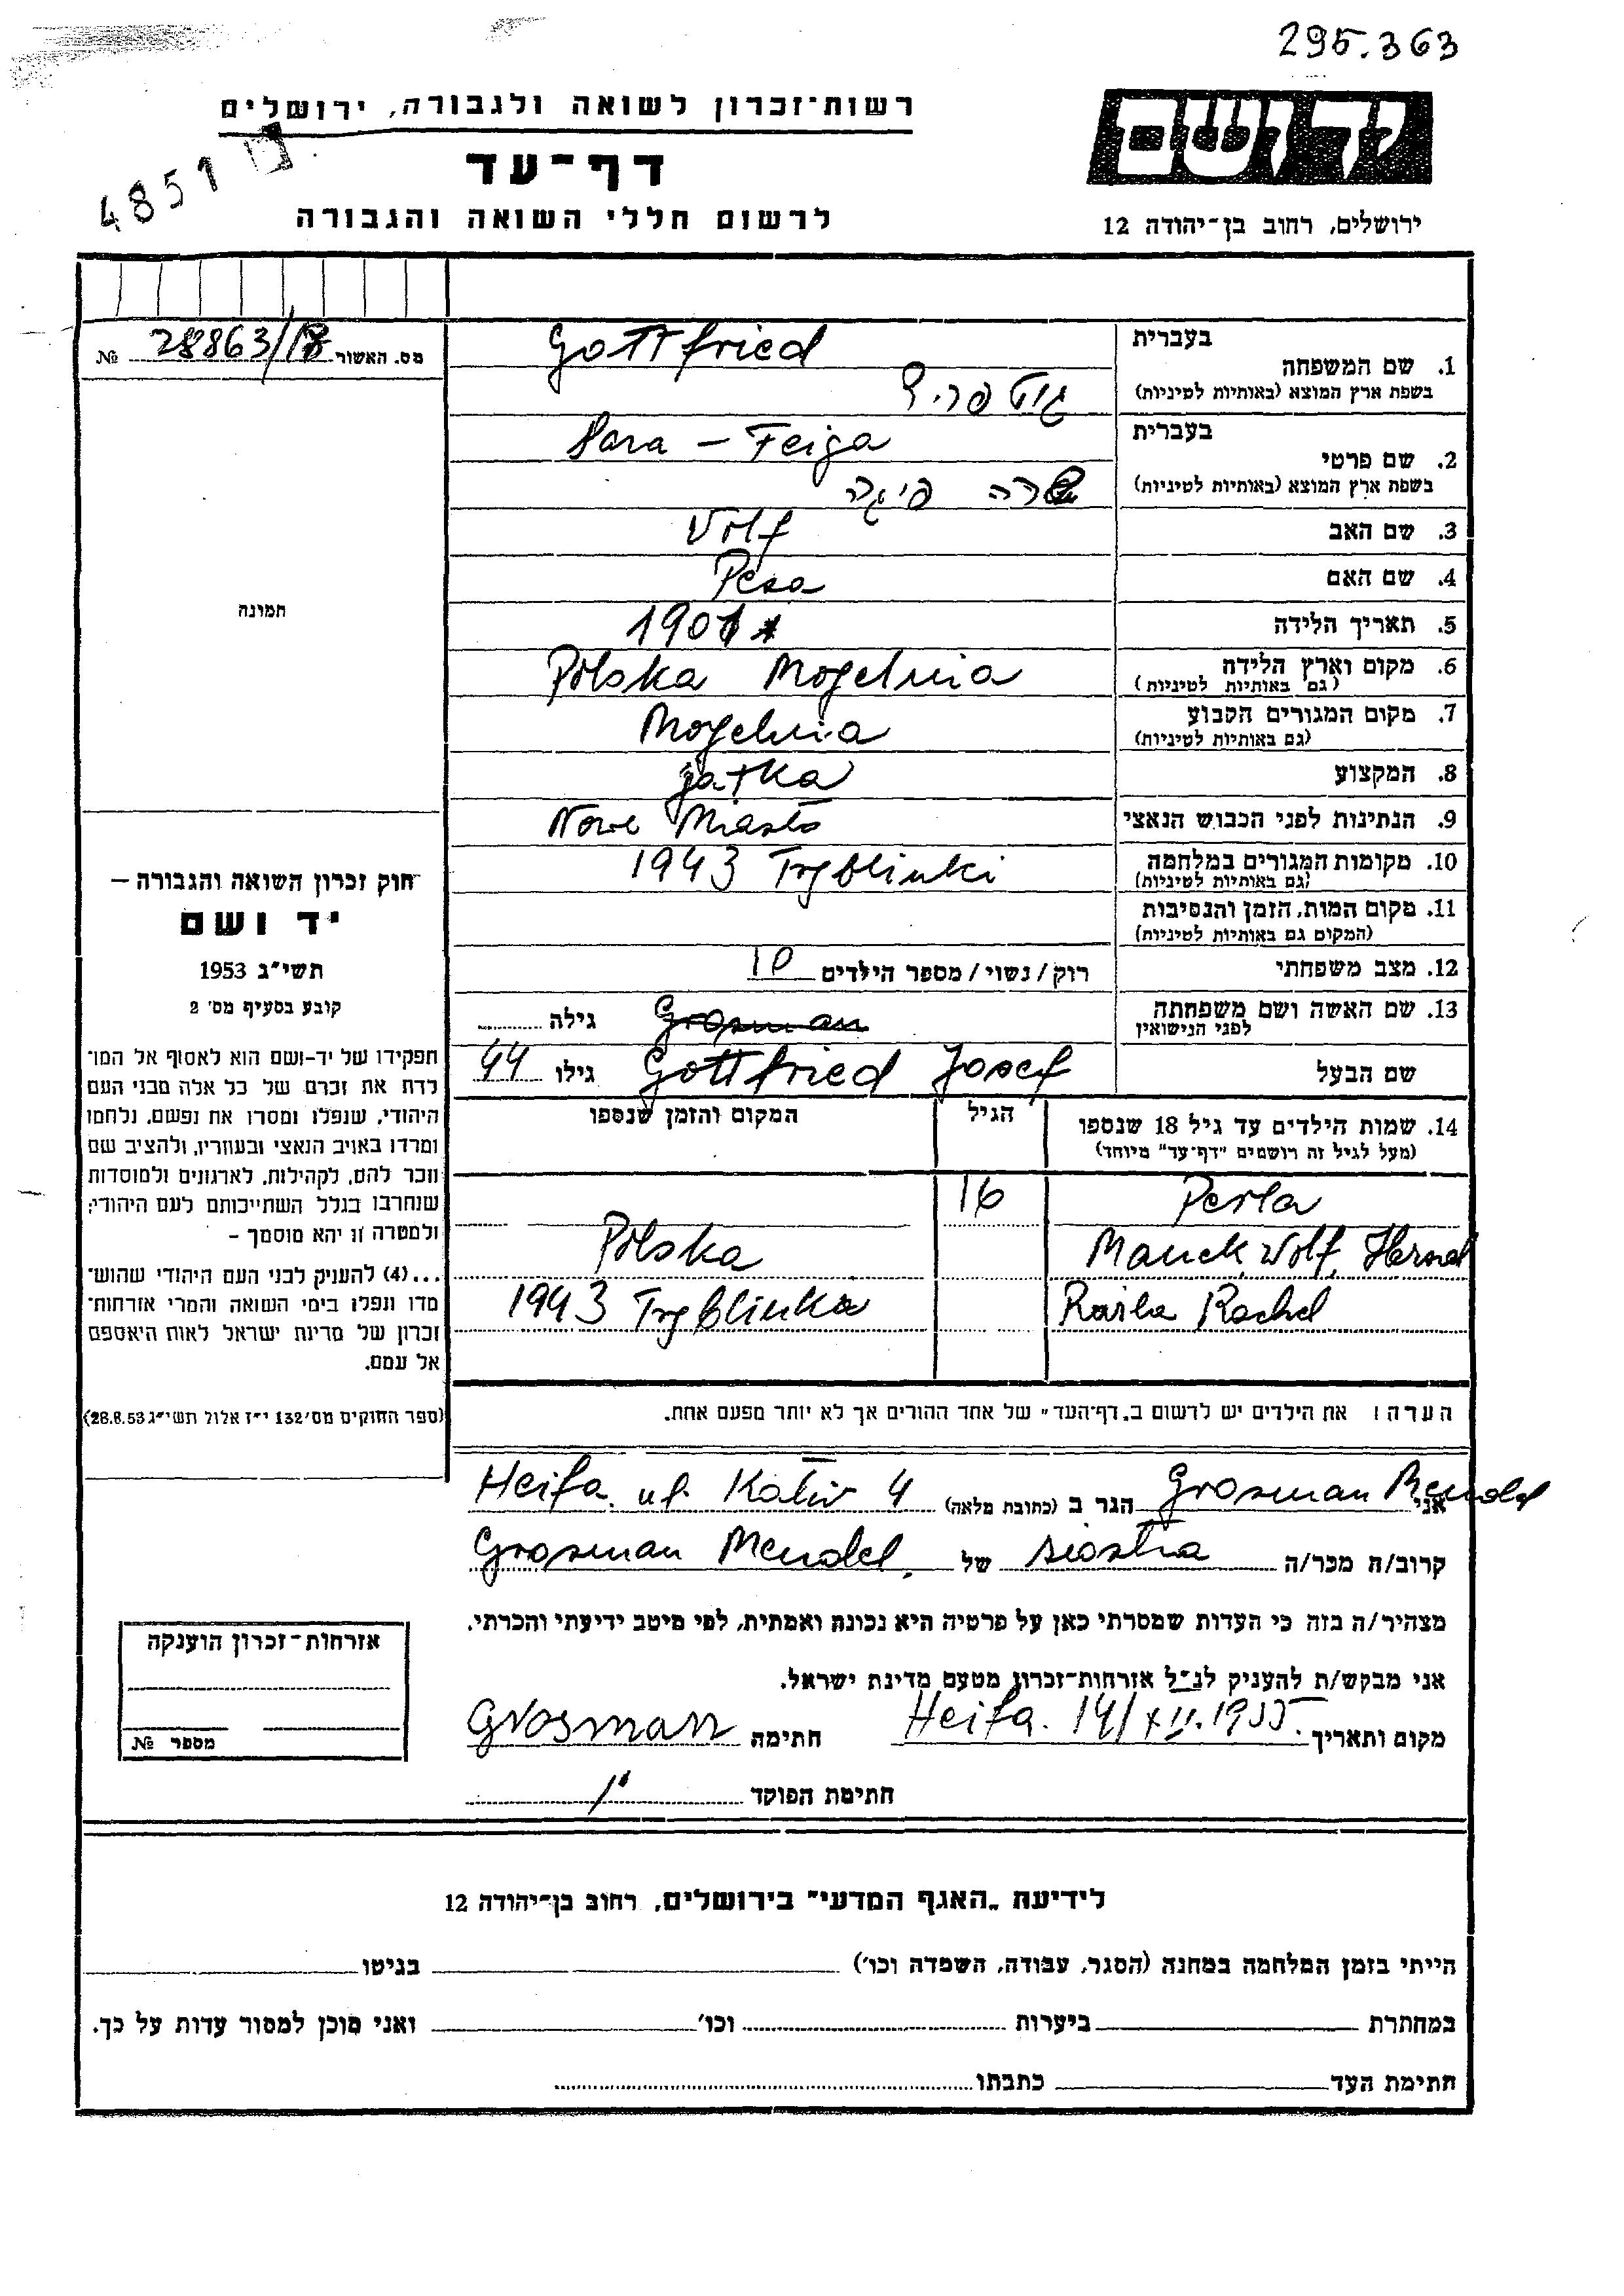 295.363
רשות־זכרון לשואה ולגבורה, ירושלים
ידושם
דף־עד
4851
לרשום חללי השואה והגבורה
ירושלים, רחוב בן־יהודה 12
מס. האשור 28863/18 №
בעברית
1. שם המשפחה
בשפת ארץ המוצא (באותיות לטיניות)
Gottfried
גוטפריד
בעברית
2. שם פרטי
בשפת ארץ המוצא (באותיות לטיניות)
Sara - Feiga
שרה פיגה
3. שם האב Volf
4. שם האם Pesa
5. תאריך הלידה 1901
6. מקום וארץ הלידה Polska Mogelnia
(גם באותיות לטיניות)
7. מקום המגורים הקבוע Mogelnia
(גם באותיות לטיניות)
8. המקצוע jatka
9. הנתינות לפני הכבוש הנאצי Nowe Miasto
10. מקומות המגורים במלחמה 1943 Tryblinki
(גם באותיות לטיניות)
11. מקום המות, הזמן והנסיבות
(המקום גם באותיות לטיניות)
12. מצב משפחתי רוק/נשוי/מספר הילדים 10
13. שם האשה ושם משפחתה Grosman גילה
לפני הנישואין
שם הבעל Gottfried Josef גילו 44
14. שמות הילדים עד גיל 18 שנספו הגיל המקום והזמן שנספו
(מעל לגיל זה רושמים "דף־עד" מיוחד)
Perla 16
Manek, Wolf, Polska
Raisla Rachel 1943 Tryblinka
הערה: את הילדים יש לרשום ב„דף־העד" של אחד ההורים אך לא יותר מפעם אחת.
תמונה
חוק זכרון השואה והגבורה –
יד ושם
תשי"ג 1953
קובע בסעיף מס' 2
תפקידו של יד-ושם הוא לאסוף אל המו־
לדת את זכרם של כל אלה מבני העם
היהודי, שנפלו ומסרו את נפשם, נלחמו
ומרדו באויב הנאצי ובעוזריו, ולהציב שם
וזכר להם, לקהילות, לארגונים ולמוסדות
שנחרבו בגלל השתייכותם לעם היהודי;
ולמטרה זו יהא מוסמך –
...(4) להעניק לבני העם היהודי שהוש־
מדו ונפלו בימי השואה והמרי אזרחות־
זכרון של מדינת ישראל לאות היאספם
אל עמם.
(ספר החוקים מס' 132 י"ז אלול תשי"ג 28.8.53)
אני Grosman Mendel הגר ב (כתובת מלאה) Heifa. ul. Kaliv 4
קרוב/ה מכר/ה siostra של Grosman Mendel
מצהיר/ה בזה כי העדות שמסרתי כאן על פרטיה היא נכונה ואמתית, לפי מיטב ידיעתי והכרתי.
אני מבקש/ת להעניק לנ"ל אזרחות־זכרון מטעם מדינת ישראל.
מקום ותאריך Heifa. 14/XII.1955. חתימה Grosman
חתימת הפוקד
אזרחות־זכרון הוענקה
מספר №
לידיעת „האגף המדעי" בירושלים, רחוב בן־יהודה 12
הייתי בזמן המלחמה במחנה (הסגר, עבודה, השמדה וכו') בגיטו
במחתרת ביערות וכו' ואני מוכן למסור עדות על כך.
חתימת העד כתבתו